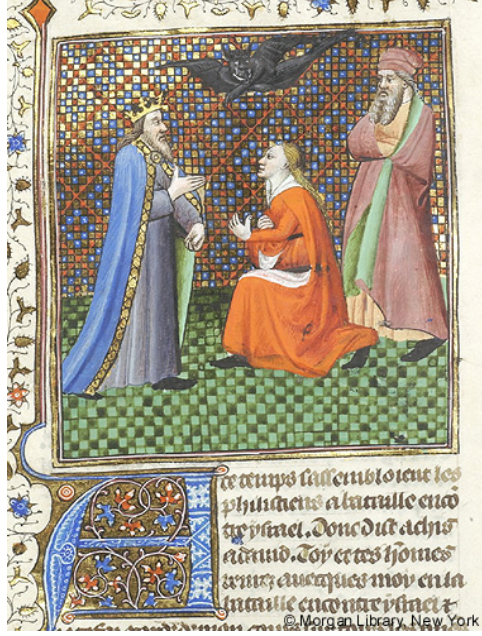 A ce temps sassembloient les
philistiens a bataille encō
tre ysrael. Donc dist achis
a dauid. Toy et tes hōmes
venez auecques moy en la
bataille encontre ysrael et
© Morgan Library, New York